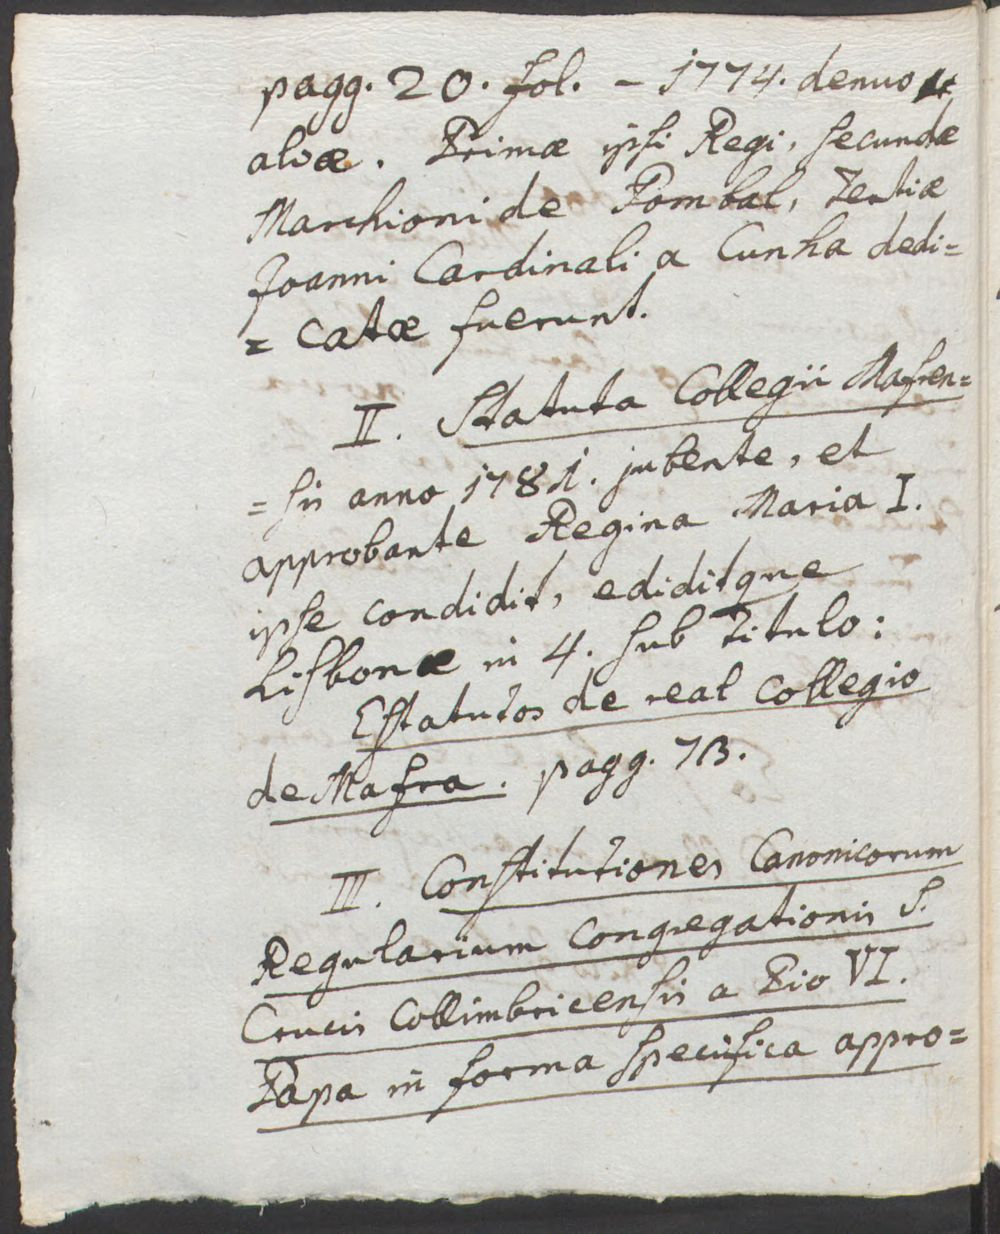 pagg. 20. fol. – 1774. denuo
alvæ. Primæ ipsi Regi, secundæ
Marchioni de Pombal, Tertiæ
Joanni Cardinali a Cunha dedi=
= catæ fuerunt.
II. Statuta Collegii Mafren=
= sis anno 1781. jubente, et
approbante Regina Maria I.
ipse condidit, ediditque
Lisbonæ in 4. sub Titulo:
Estatutos de real collegio
de Mafra. pagg. 73.
III. Constitutiones Canonicorum
Regularium Congregationis S.
Crucis Collimbricensis a Pio VI.
Papa in forma specifica appro=